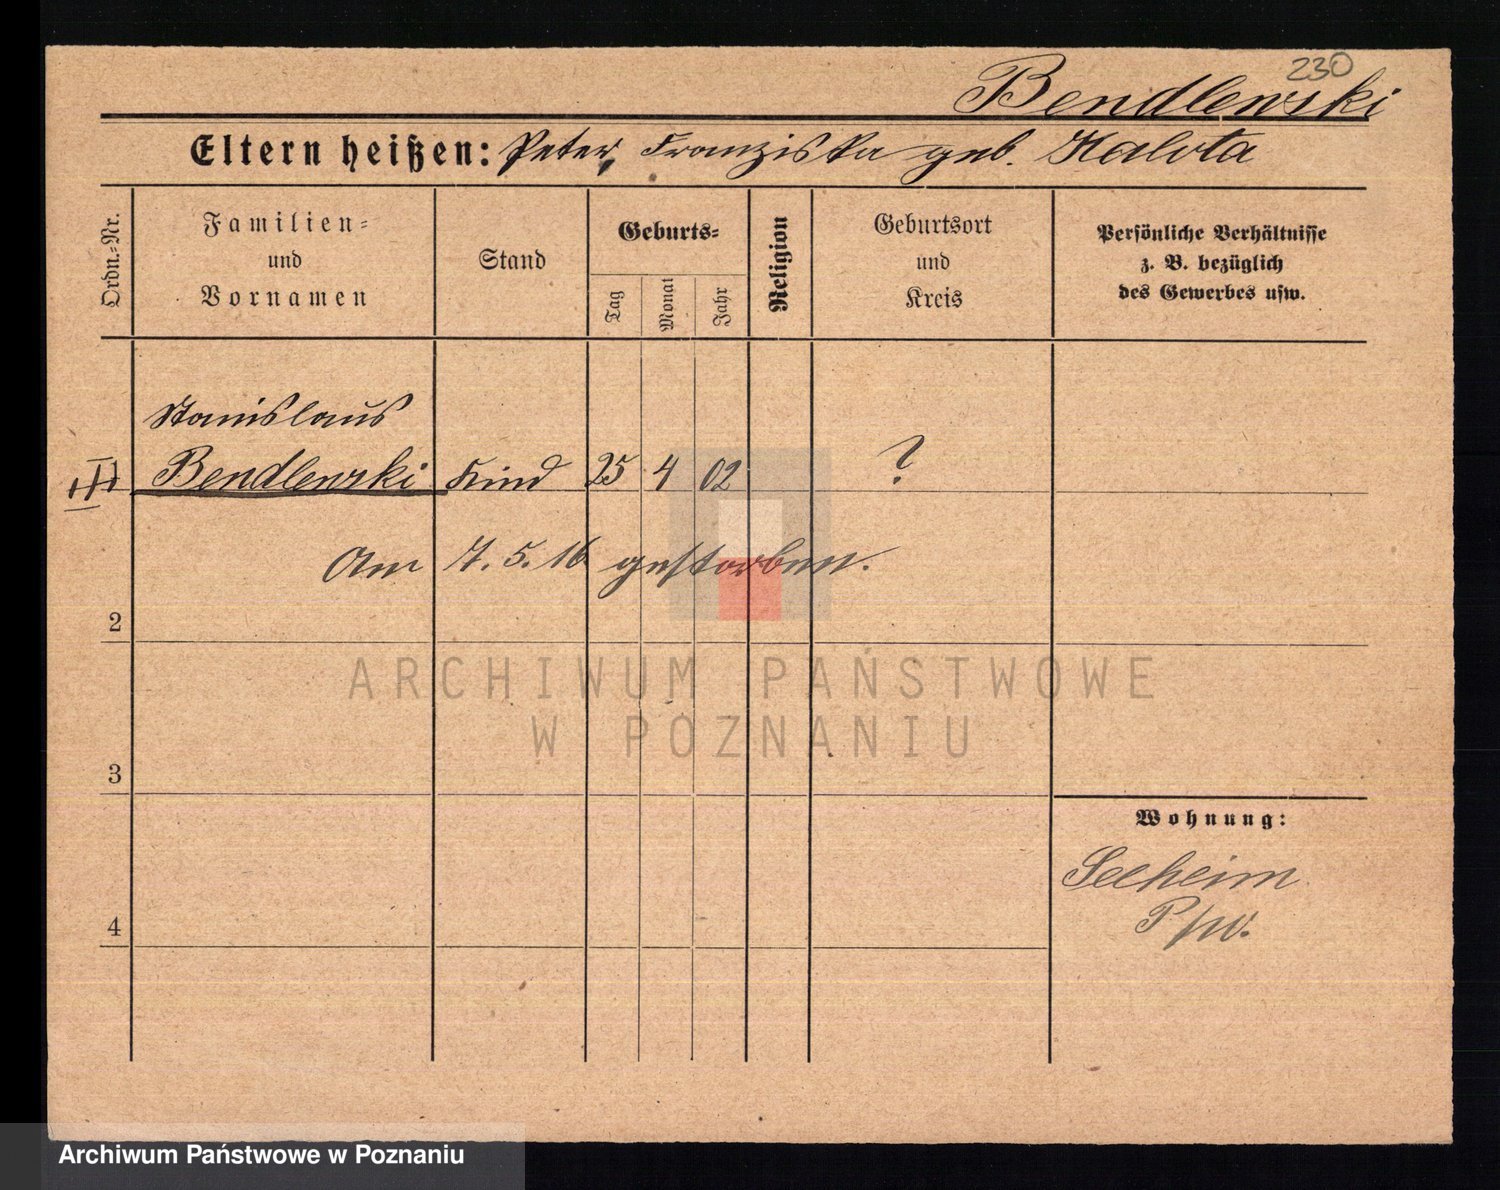 230
Bendlewski
Eltern heißen: Peter, Franziska geb. Kalota
Ordn.-Nr.
Familien-
und
Vornamen
Stand
Geburts-
Tag
Monat
Jahr
Religion
Geburtsort
und
Kreis
Persönliche Verhältnisse
z. B. bezüglich
des Gewerbes usw.
Stanislaus
Bendlewski Kind 25 4 02 ?
Am 7. 5. 16 gestorben.
2
ARCHIWUM PAŃSTWOWE
W POZNANIU
3
Wohnung:
Seeheim
4
Archiwum Państwowe w Poznaniu